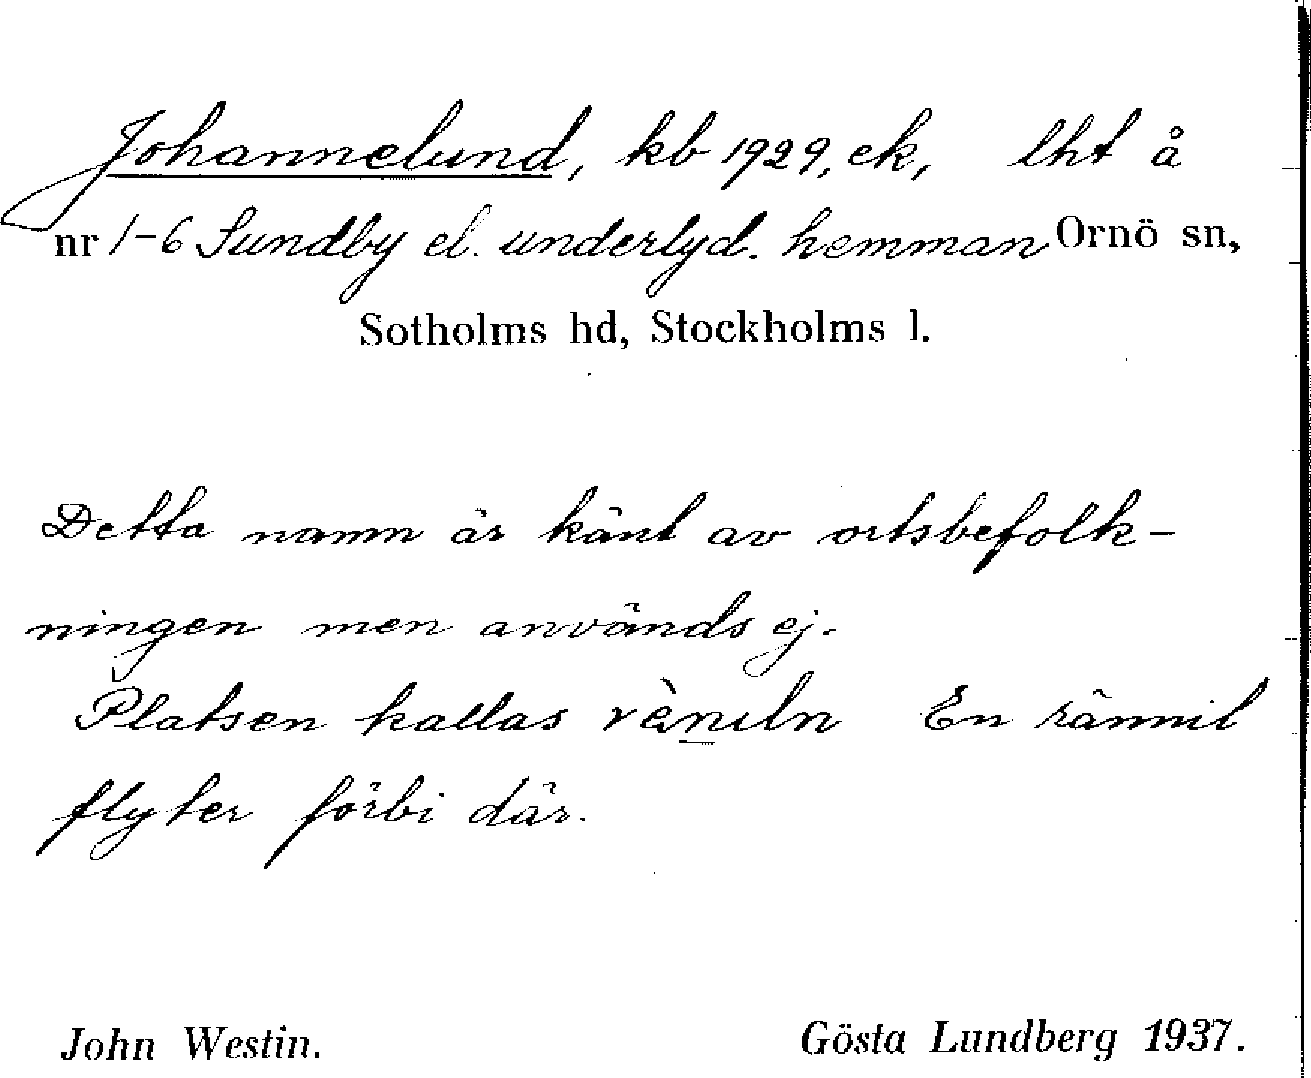 Johannelund, kb 1929, ek, lht å
nr 1-6 Sundby el. underlyd. hemman Ornö sn,
Sotholms hd, Stockholms l.
Detta namn är känt av ortsbefolk-
ningen men används ej.
Platsen kallas En rännil
flyter förbi där.
John Westin. Gösta Lundberg 1937.